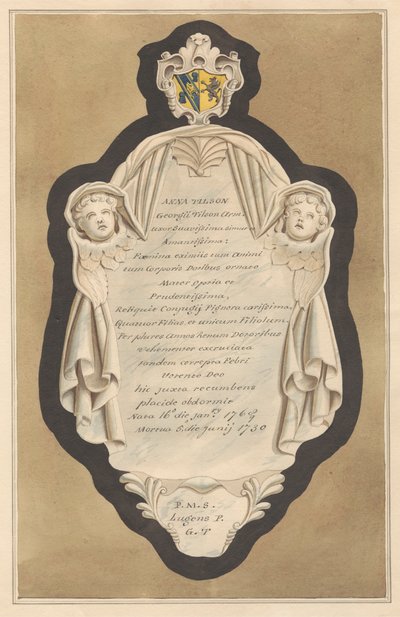 ANNA TILSON
Georgii Tilson Arm:
uxor Suavissima simul
Amantissima:
Fæmina eximiis tum Animi
tum Corporis Dotibus ornata
Mater Optia et
Prudentissima,
Reliquit Conjugij Pignora carissima,
Quatuor Filias, et unicum Filiolum.
Per plures Annos henum Doloribus
Vehementer excruciata
tandem correpta Febri
Volente Deo
hic juxta recumbens
placide obdormit
Nata 16º die Janry
Mortua 5. die Junij 1730
P. M. S.
Lugens P.
G. T